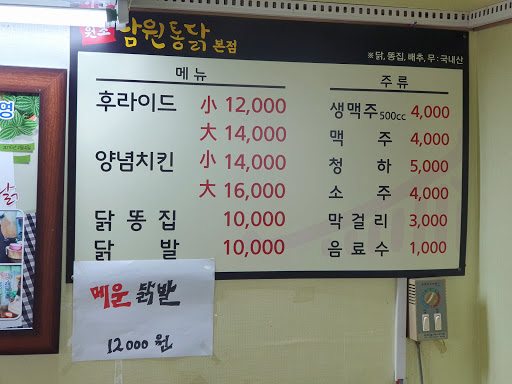 원조 남원통닭 본점
※닭,똥집,배추,무:국내산
메뉴
후라이드 小 12,000
大 14,000
양념치킨 小 14,000
大 16,000
닭똥집 10,000
닭발 10,000
주류
생맥주500cc 4,000
맥주 4,000
청하 5,000
소주 4,000
막걸리 3,000
음료수 1,000
매운 닭발
12000원
영
닭